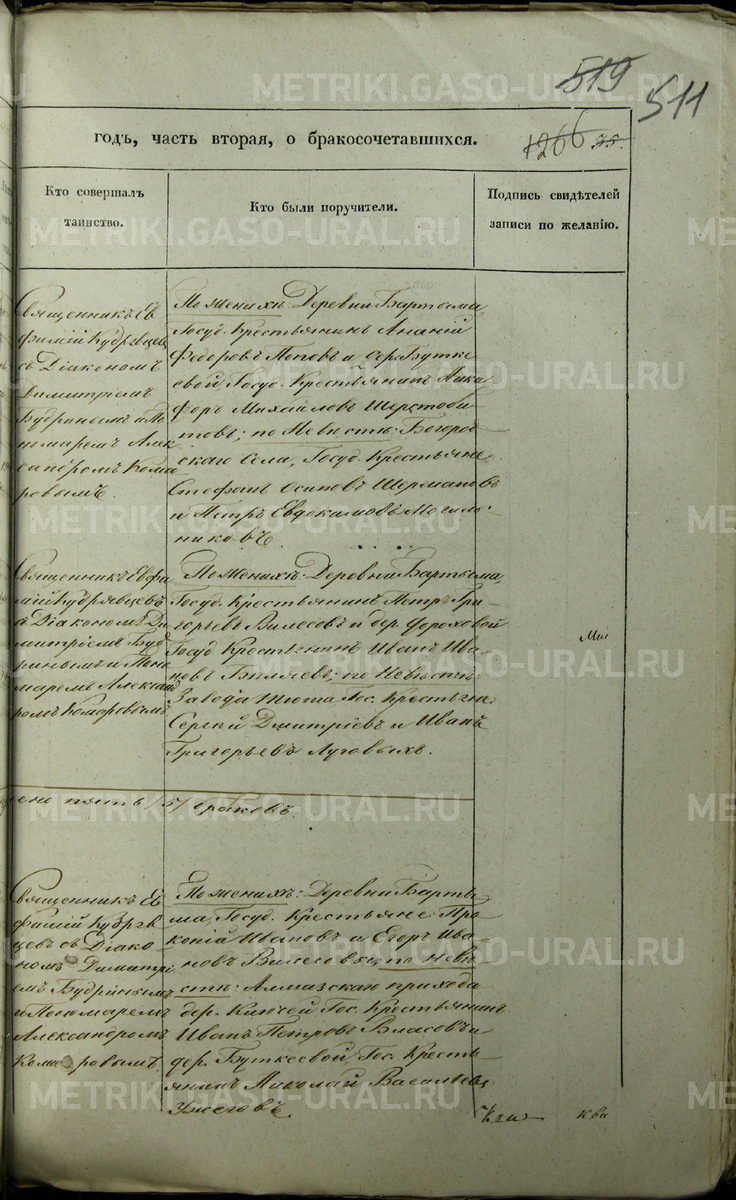 519 511
годъ, часть вторая, о бракосочетавшихся.
1266
Кто совершалъ
таинство.
Кто были поручители.
Подпись свидѣтелей
записи по желанію.
Священникъ Ев
фимій Кудрявцевъ
съ Діакономъ
Димитріемъ
Будринымъ и По
номаремъ Алек
сандромъ Кома
ровымъ.
По женихѣ: Деревни Бартыма,
Госуд. Крестьянинъ Ананій
Федоровъ Поповъ и дер. Бутке
евой Госуд. Крестьянинъ Ники
форъ Михайловъ Шерстоби
товъ; по невѣстѣ: Богород
скаго Села, Госуд. Крестьяне
Стефанъ Осиповъ Шермановъ
и Петръ Евдокимовъ Могиль
никовъ.
Священникъ Евфи
мій Кудрявцевъ
съ Діакономъ Ди
митріемъ Буд
ринымъ и Поно
маремъ Алексан
дромъ Комаровымъ
По женихѣ: Деревни Бартыма,
Госуд. Крестьянинъ Петръ Гри-
горьевъ Вилесовъ и дер. Дороховой
Госуд. Крестьянинъ Иванъ Ива-
новъ Бѣляевъ; по невѣстѣ:
Завода Тюша Гос. Крестьяне
Сергѣй Дмитріевъ и Иванъ
Григорьевъ Луговыхъ.
пять /5/ браковъ.
Священникъ Ев
фимій Кудряв
цевъ съ Діако
номъ Димитрі
емъ Будринымъ
и Пономаремъ
Александромъ
Комаровымъ.
По женихѣ: Деревни Барты-
ма, Госуд. Крестьяне: Про
копій Ивановъ и Егоръ Ива
новъ Вилесовы; по невѣ
стѣ: Алмазскаго прихода
дер. Ключей Гос. Крестьянинъ
Иванъ Петровъ Власовъ и
дер. Буткеевой Гос. Кресть-
янинъ Николай Васильевъ
Ужеговъ.
METRIKI.GASO-URAL.RU